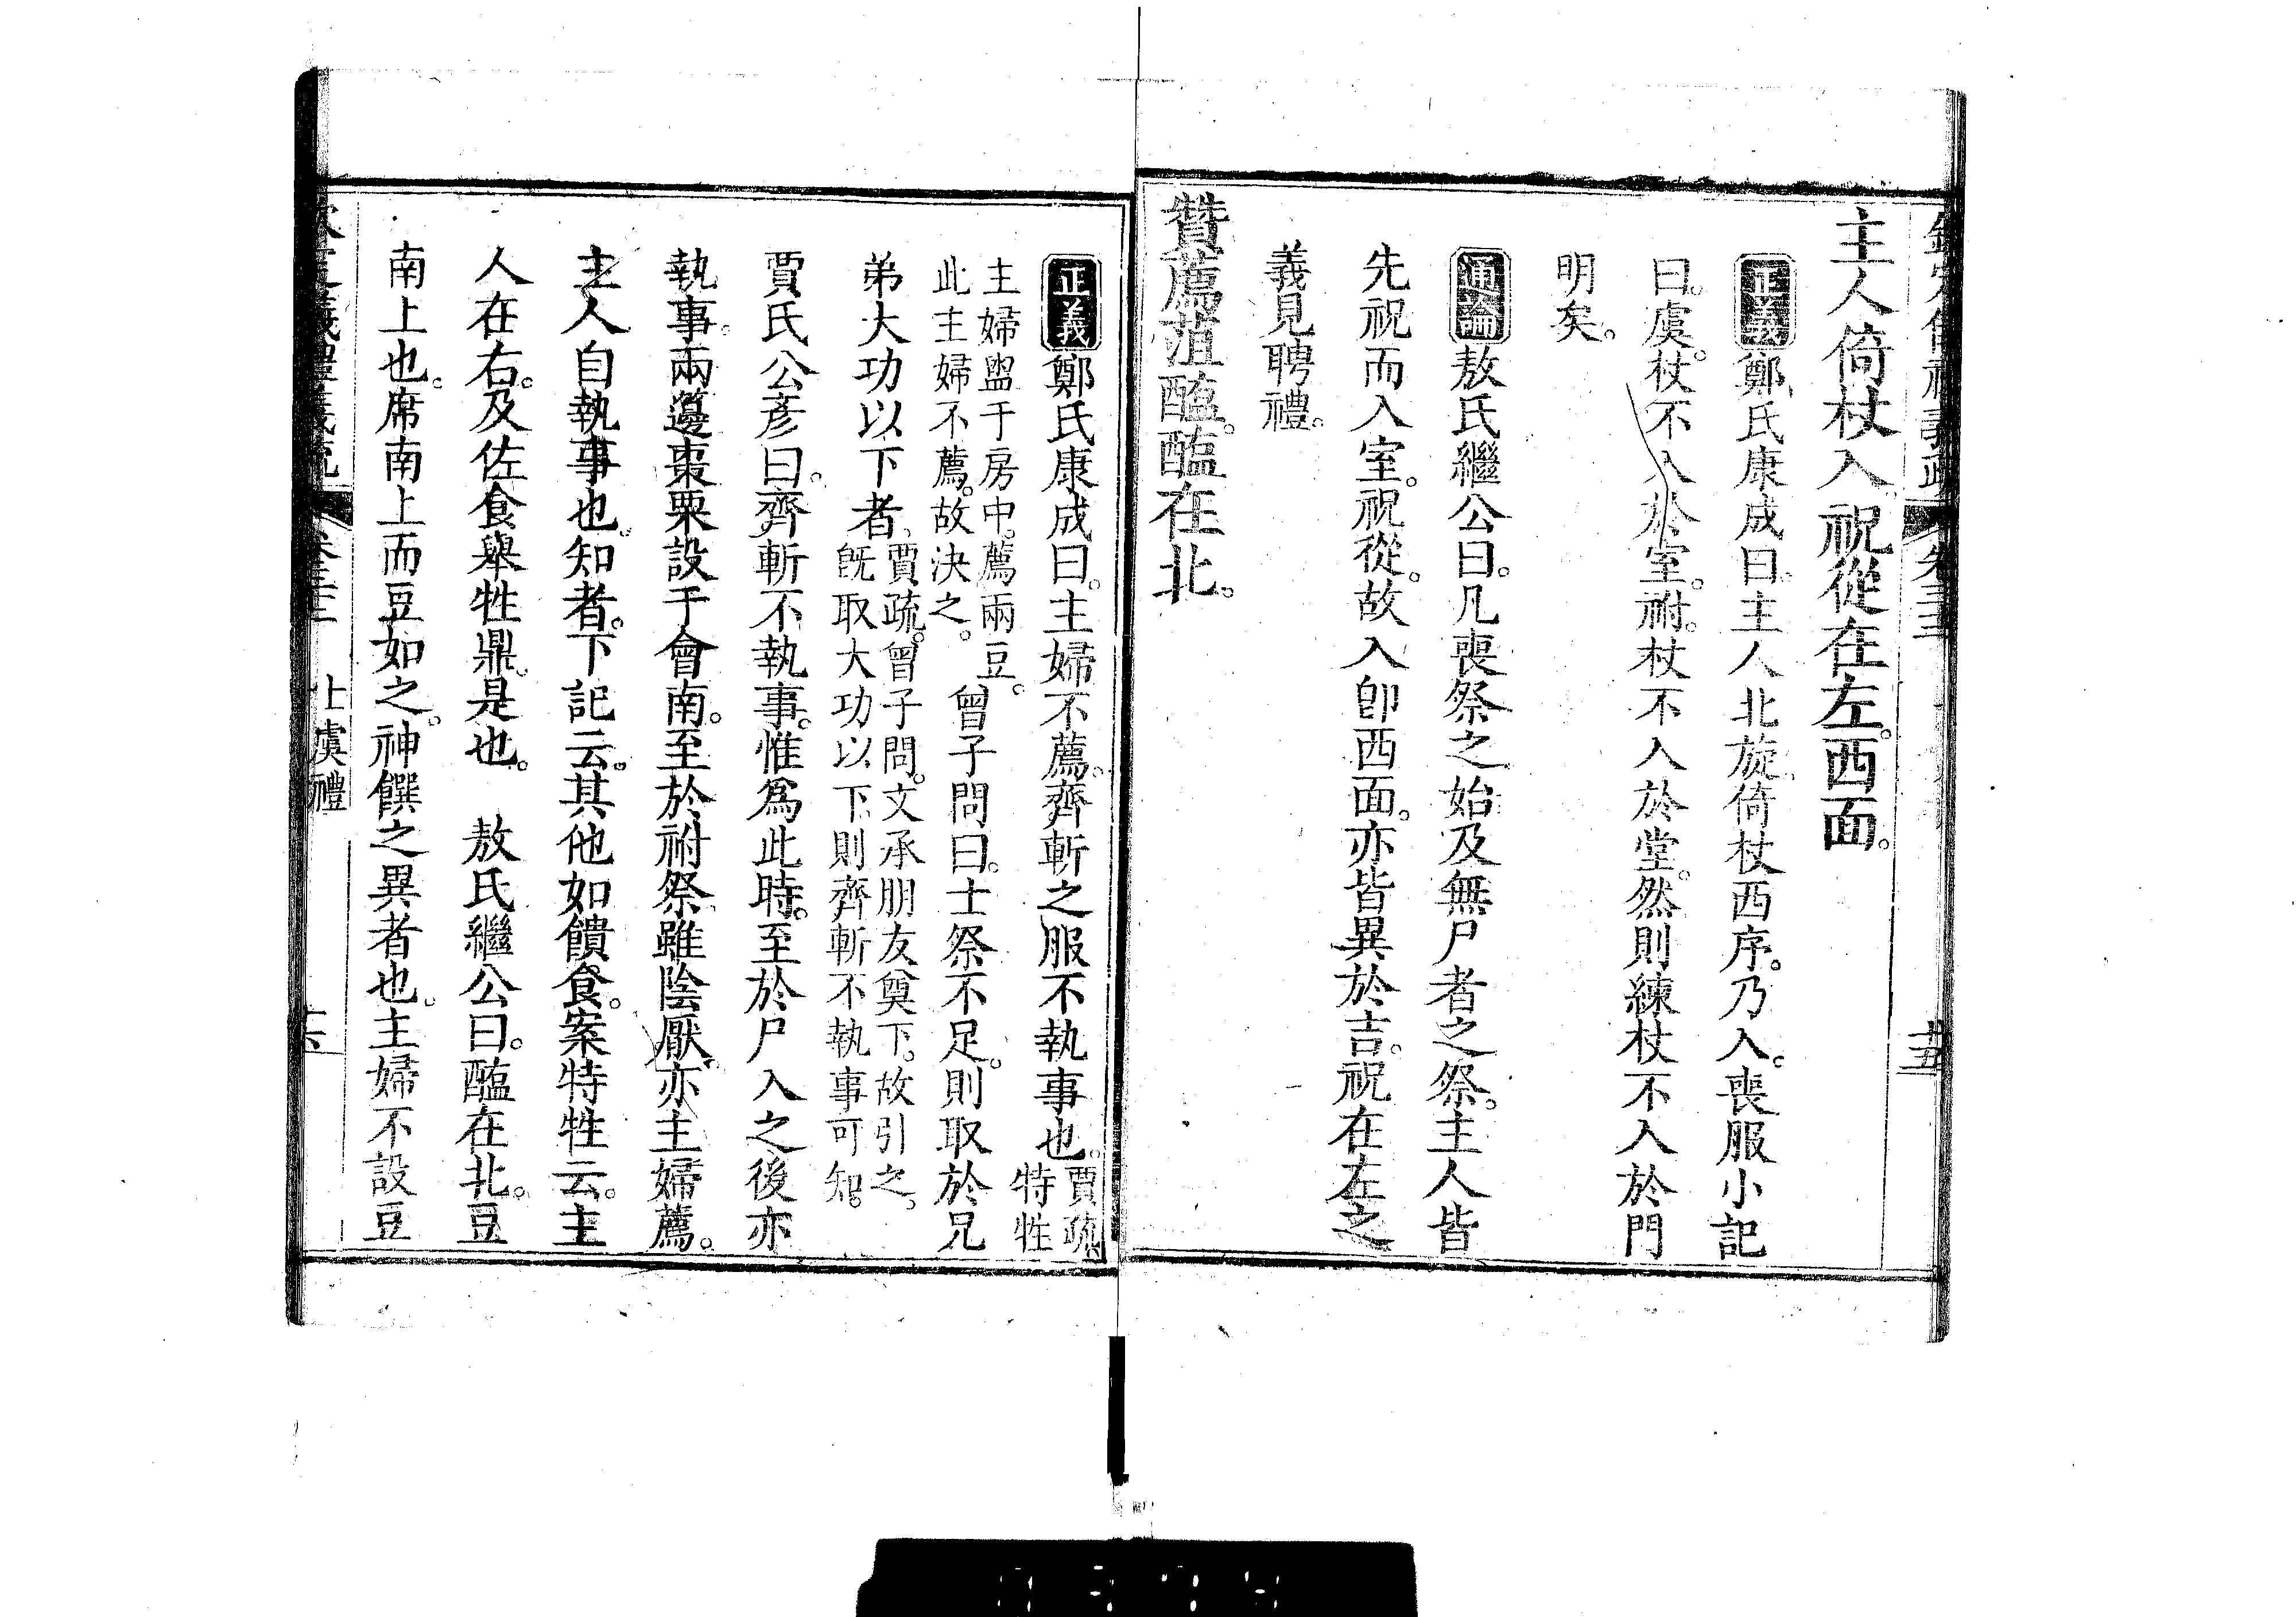 主人倚杖入。祝從在左。西面。
正義鄭氏康成曰。主人北旋倚杖西序。乃入。喪服小記
曰。虞。杖不入於室。祔。杖不入於堂。然則練杖不入於門
明矣。
通論敖氏繼公曰。凡喪祭之始及無尸者之祭。主人皆
先祝而入室。祝從。故入卽西面。亦皆異於吉。祝在左之
義見聘禮。
贊薦菹醢。醢在北。
正義鄭氏康成曰。主婦不薦。齊斬之服不執事也。賈疏。特牲
主婦盥于房中。薦兩豆。此主婦不薦。故決之。曾子問曰。士祭不足。則取於兄
弟大功以下者。賈疏。曾子問。文承朋友奠下。故引之。旣取大功以下。則齊斬不執事可知。
賈氏公彥曰。齊斬不執事。惟爲此時。至於尸入之後亦
執事。兩籩棗栗設于會南。至於祔祭。雖陰厭。亦主婦薦。
主人自執事也。知者。下記云。其他如饋食。案特牲云。主
人在右。及佐食舉牲鼎。是也。 敖氏繼公曰。醢在北。豆
南上也。席南上而豆如之。神饌之異者也。主婦不設豆
士虞禮